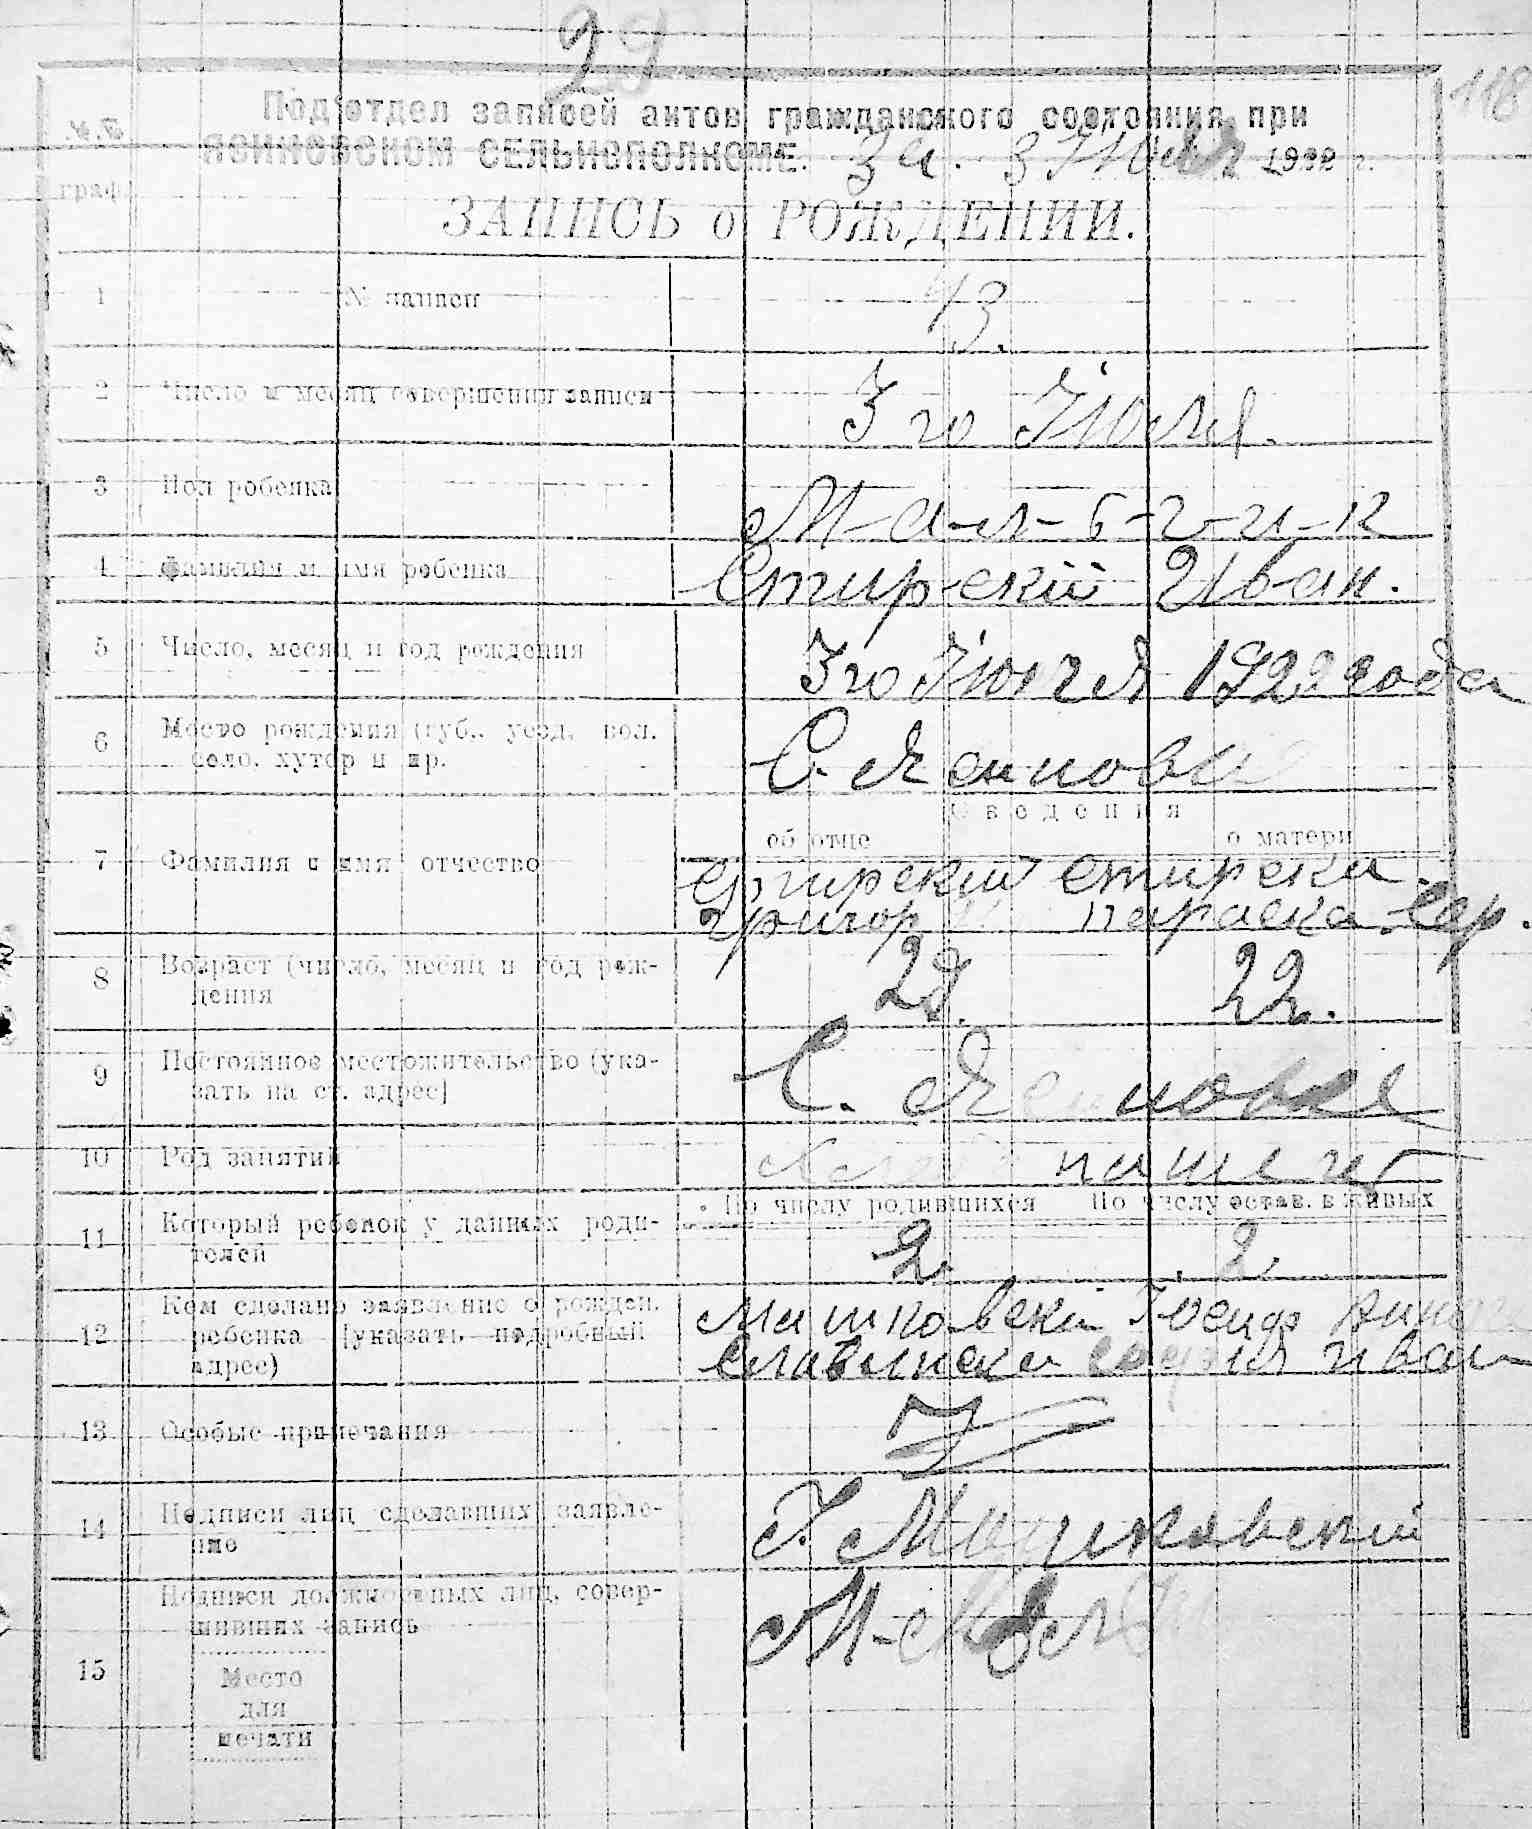 29
118
№ №
граф
Подотдел записей актов гражданского состояния при
ЯСИНОВСКОМ СЕЛЬИСПОЛКОМЕ. за 3 1922 г.
ЗАПИСЬ о РОЖДЕНИИ.
1 № записи 43.
2 Число и месяц совершения записи 3 го Июля.
3 Пол ребенка М-а-л-ь-ч-и-к
4 Фамилия и имя ребенка Стирскій Иван.
5 Число, месяц и год рождения 3 го 1922 года
6 Место рождения (губ., уезд. вол. С.
село, хутор и пр.
Сведения
об отце о матери
7 Фамилия и имя отчество Стирский Стирска
Григор Параска Сер.
8 Возраст (число, месяц и год рож- 28. 22.
дения
9 Постоянное местожительство (ука- С.
зать на ст. адрес)
10 Род занятий
По числу родившихся По числу остав. в живых
11 Который ребенок у данных роди- 2. 2.
телей
12 Кем сделано заявление о рожден. Машковскі Іосиф
ребенка (указать подробный Славинска София Иван
адрес)
13 Особые примечания
14 Подписи лиц сделавших заявле- І. Машковскій
ние
15 Подписи должностных лиц, совер-
шивших запись
Место
для
печати